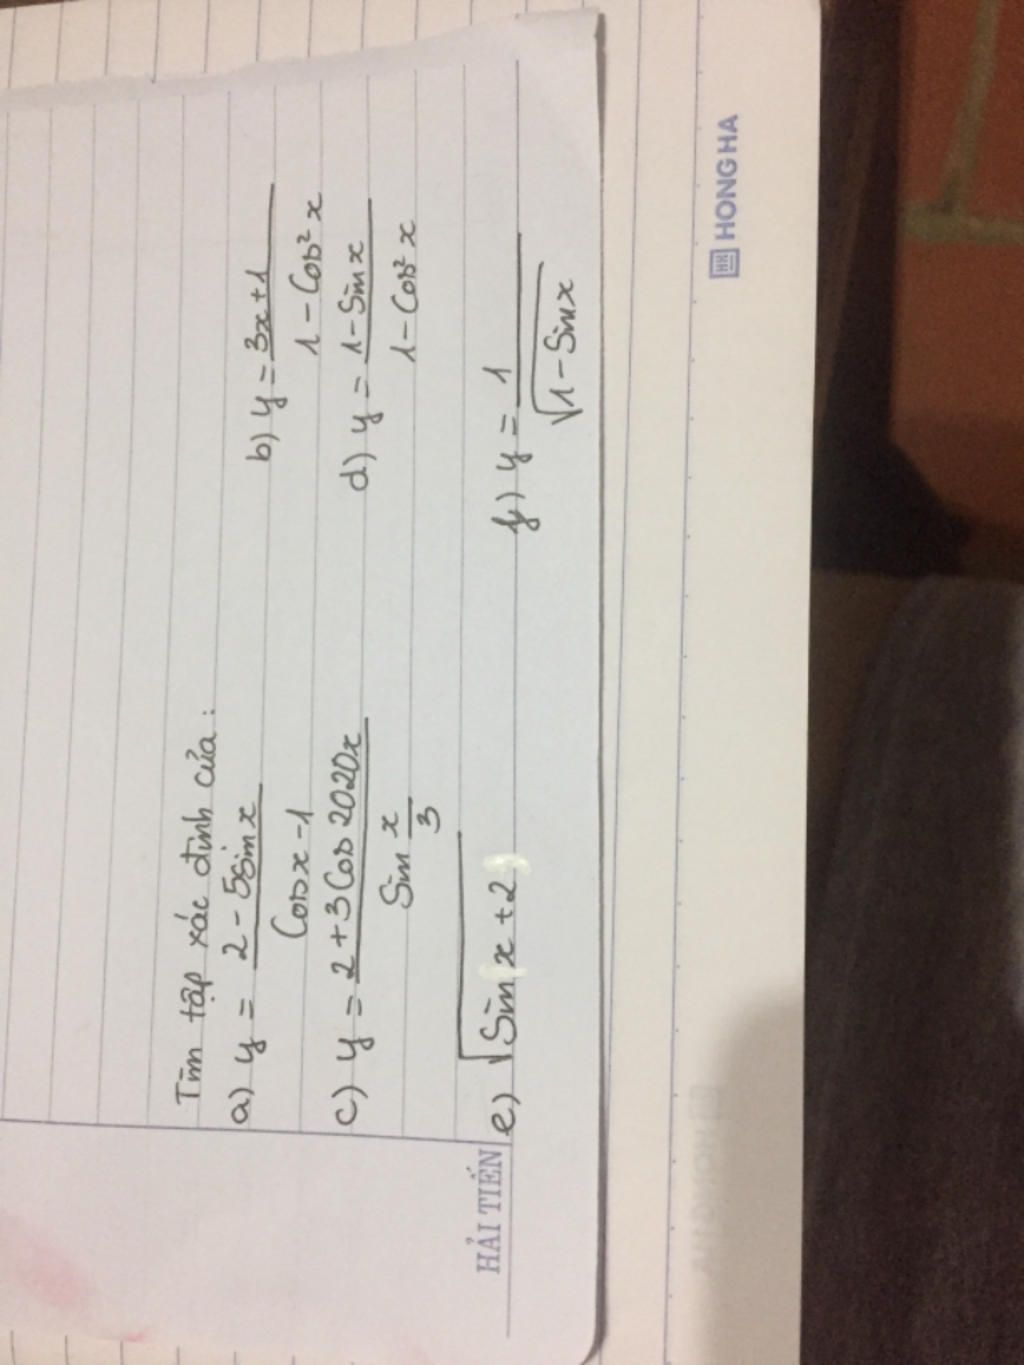 Tìm tập xác định của:
a) y = 2 - 5sin x / Cosx - 1
b) y = 3x + 1 / 1 - Cos² x
c) y = 2 + 3 Cos 2020x / Sin x/3
d) y = 1 - Sin x / 1 - Cos² x
e) √Sin x + 2
f) y = 1 / √1 - Sin x
HẢI TIẾN
HH HONG HA